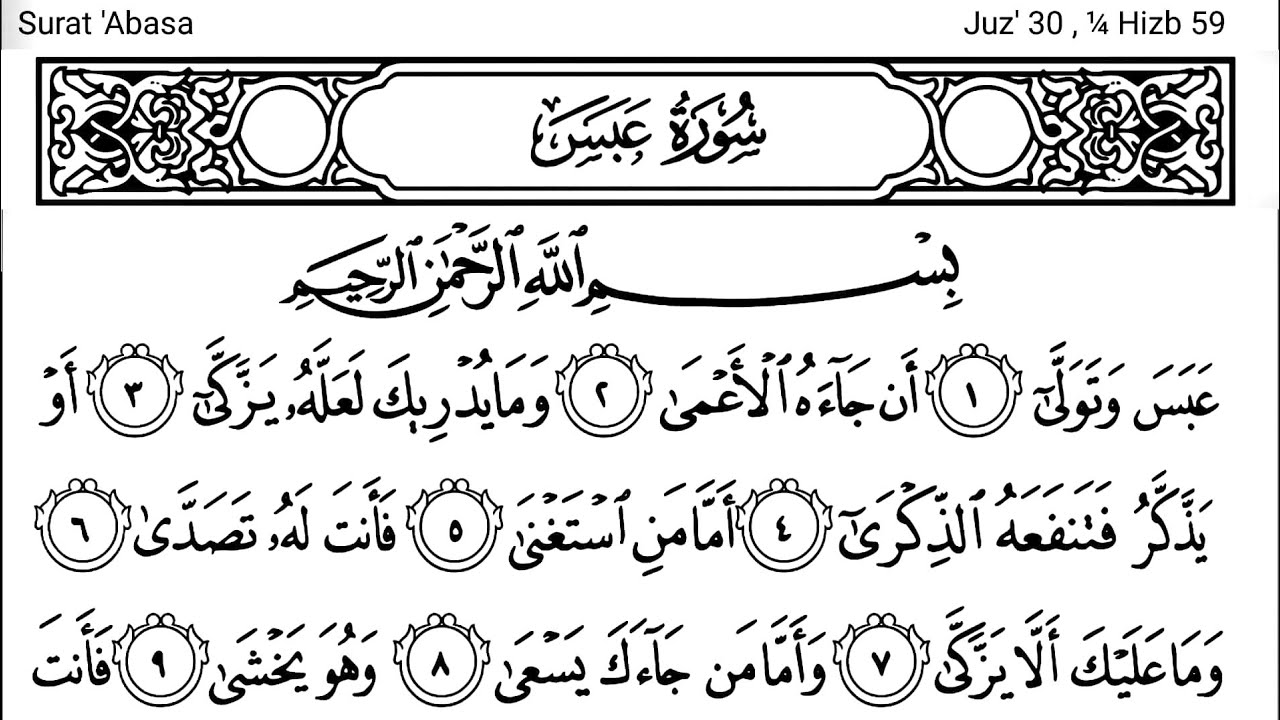 Surat 'Abasa
Juz' 30 , ¼ Hizb 59
سُورَةُ عَبَسَ
بِسْمِ ٱللَّهِ ٱلرَّحْمَٰنِ ٱلرَّحِيمِ
عَبَسَ وَتَوَلَّىٰٓ ١ أَن جَآءَهُ ٱلْأَعْمَىٰ ٢ وَمَا يُدْرِيكَ لَعَلَّهُۥ يَزَّكَّىٰٓ ٣ أَوْ
يَذَّكَّرُ فَتَنفَعَهُ ٱلذِّكْرَىٰٓ ٤ أَمَّا مَنِ ٱسْتَغْنَىٰ ٥ فَأَنتَ لَهُۥ تَصَدَّىٰ ٦
وَمَا عَلَيْكَ أَلَّا يَزَّكَّىٰ ٧ وَأَمَّا مَن جَآءَكَ يَسْعَىٰ ٨ وَهُوَ يَخْشَىٰ ٩ فَأَنتَ